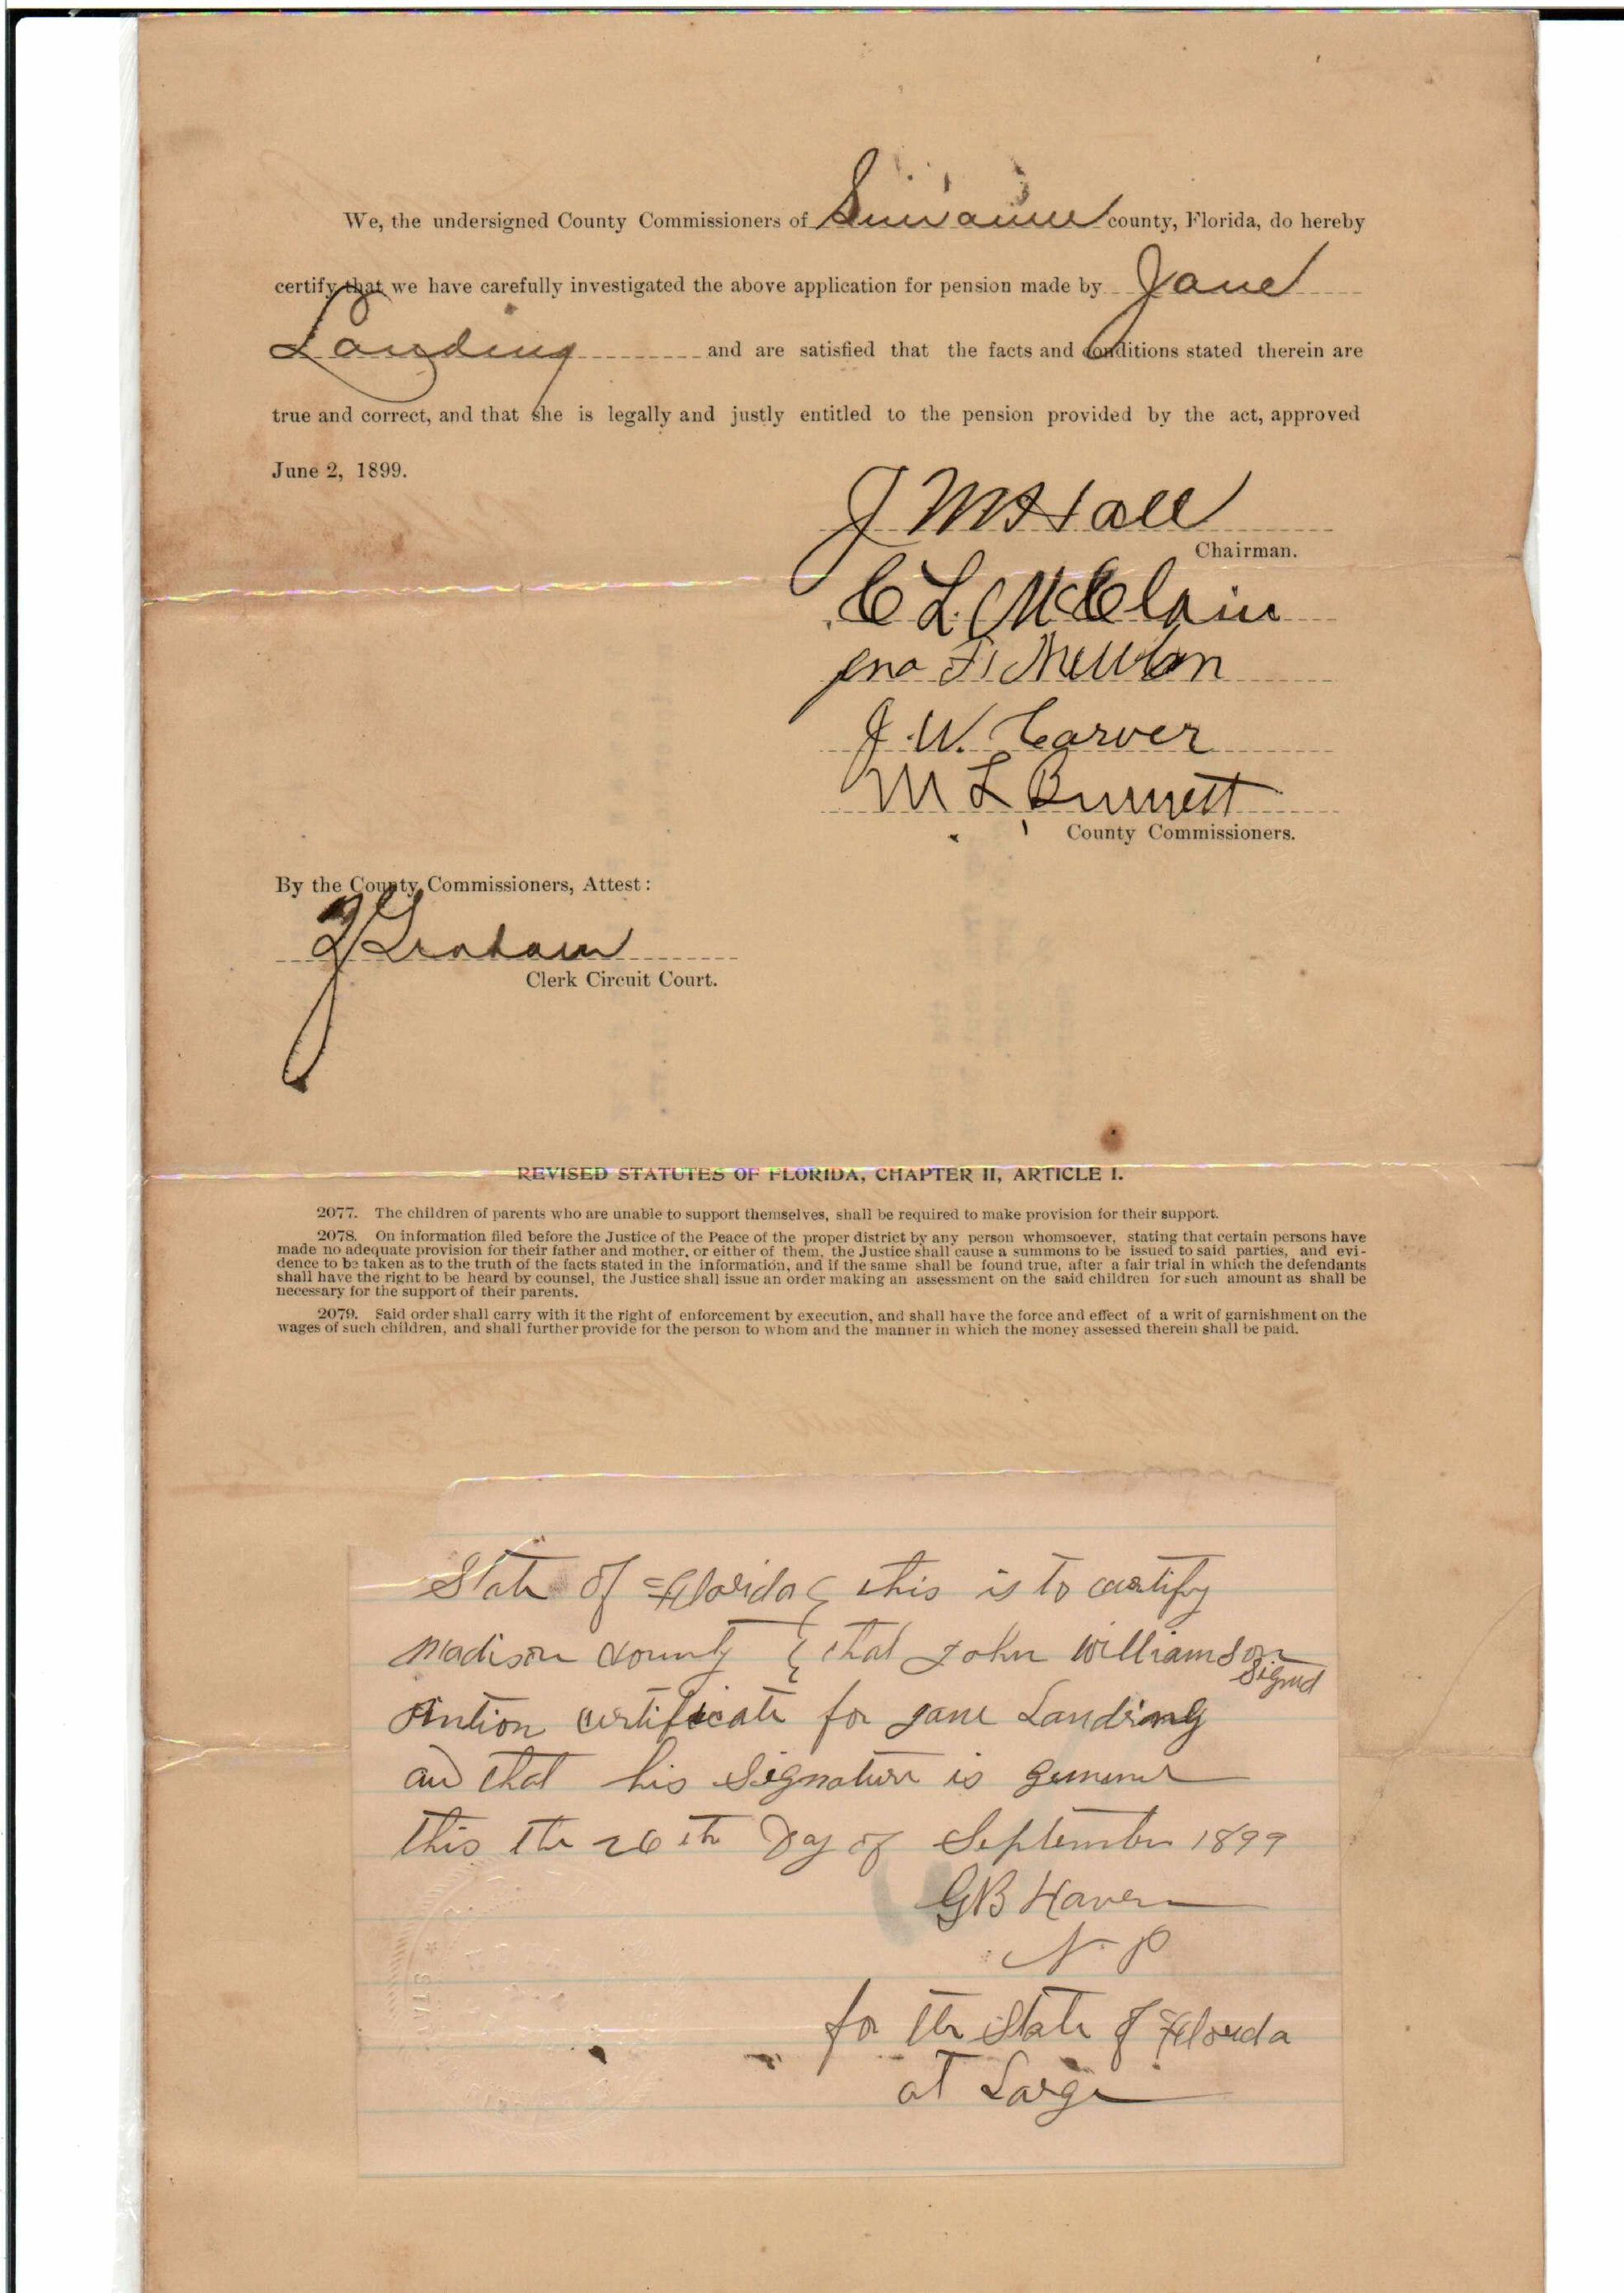 We, the undersigned County Commissioners of Suwannee county, Florida, do hereby
certify that we have carefully investigated the above application for pension made by Jane
Landing and are satisfied that the facts and conditions stated therein are
true and correct, and that she is legally and justly entitled to the pension provided by the act, approved
June 2, 1899.
J M Hall
Chairman.
C L. McClain
Jno F. Newlan
J. W. Carver
M L Burnett
County Commissioners.
By the County Commissioners, Attest:
Graham
Clerk Circuit Court.
REVISED STATUTES OF FLORIDA, CHAPTER II, ARTICLE I.
2077. The children of parents who are unable to support themselves, shall be required to make provision for their support.
2078. On information filed before the Justice of the Peace of the proper district by any person whomsoever, stating that certain persons have
made no adequate provision for their father and mother, or either of them, the Justice shall cause a summons to be issued to said parties, and evi-
dence to be taken as to the truth of the facts stated in the information, and if the same shall be found true, after a fair trial in which the defendants
shall have the right to be heard by counsel, the Justice shall issue an order making an assessment on the said children for such amount as shall be
necessary for the support of their parents.
2079. Said order shall carry with it the right of enforcement by execution, and shall have the force and effect of a writ of garnishment on the
wages of such children, and shall further provide for the person to whom and the manner in which the money assessed therein shall be paid.
State of Florida { this is to certify
Madison County { that John Williamson
signed
Pention certificate for Jane Landing
and that his Signature is
this the 26th Day of September 1899
GB Haven
N. P
for the State of Florida
at Large